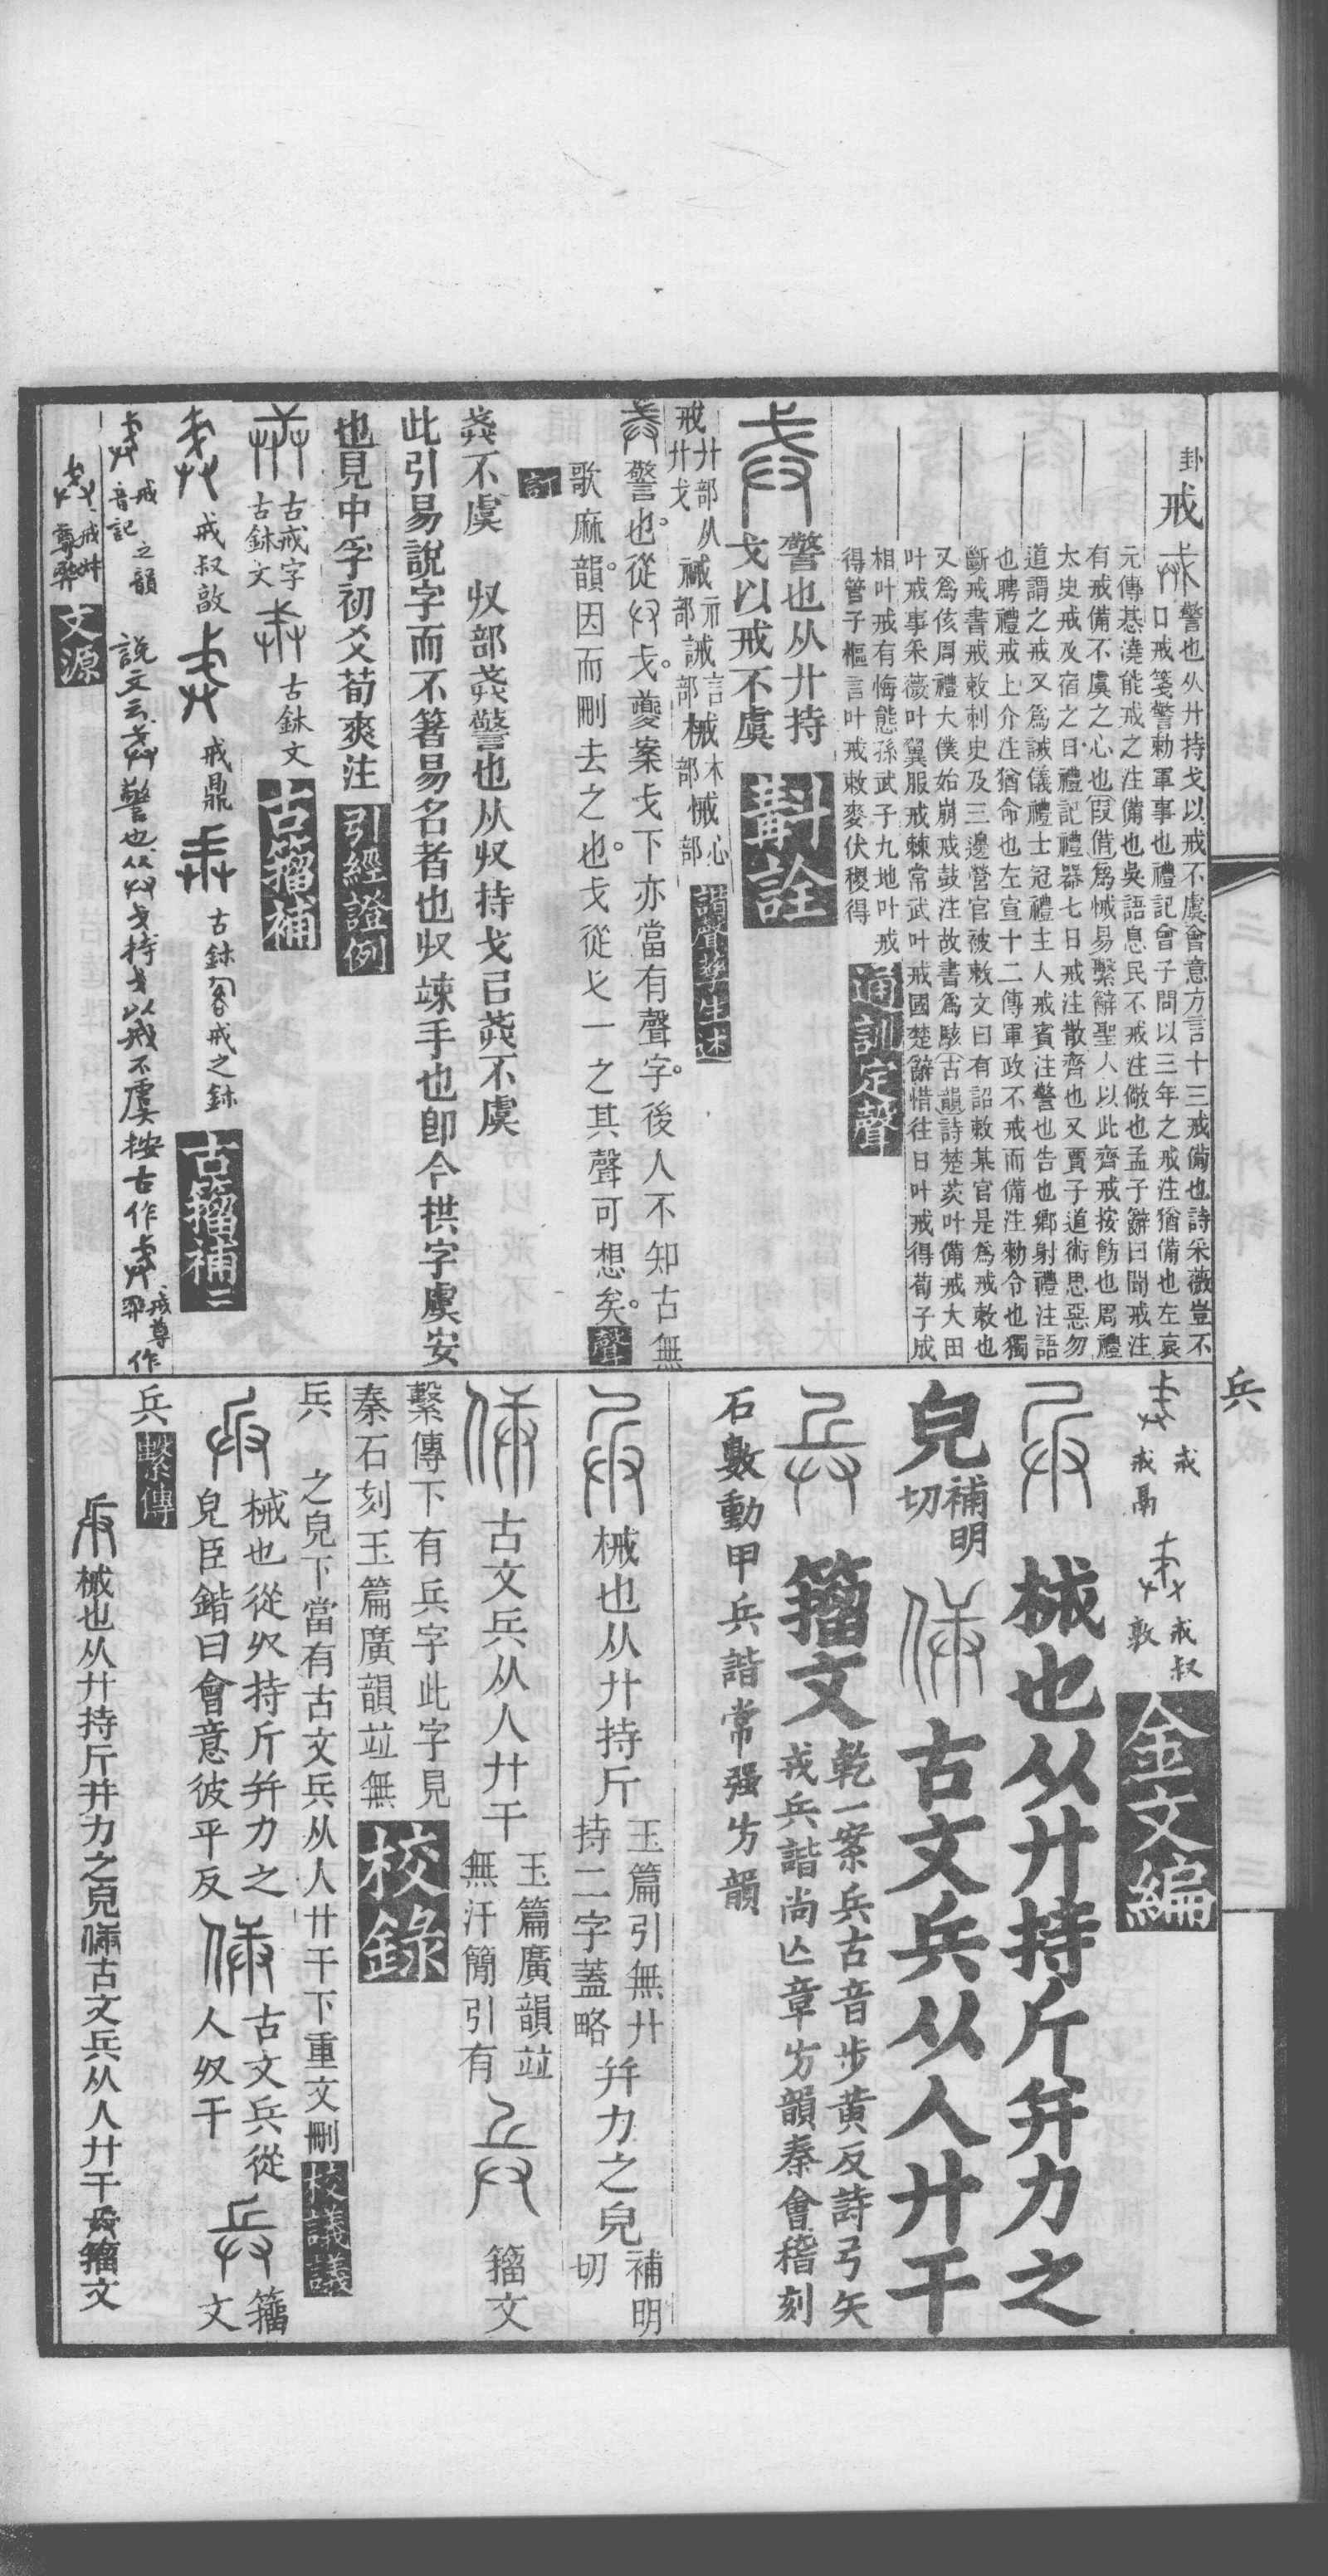 卦
戒
警也从廾持戈以戒不虞會意方言十三戒備也詩采薇豈不
口戒箋警勅軍事也禮記曾子問以三年之戒注猶備也左哀
元傳惎澆能戒之注備也吳語息民不戒注儆也孟子辭曰聞戒注
有戒備不虞之心也叚借爲悈易繫辭聖人以此齊戒按飭也周禮
太史戒及宿之日禮記禮器七日戒注散齊也又賈子道術思惡勿
道謂之戒又爲誡儀禮士冠禮主人戒賓注警也告也鄉射禮注語
也聘禮戒上介注猶命也左宣十二傳軍政不戒而備注勅令也獨
斷戒書戒敕刺史及三邊營官被敕文曰有詔敕某官是爲戒敕也
又爲侅周禮大僕始崩戒鼓注故書爲駭古韻詩楚茨叶備戒大田
叶戒事采薇叶翼服戒棘常武叶戒國楚辭惜往日叶戒得荀子成
相叶戒有悔態孫武子九地叶戒
得管子樞言叶戒敕麥伏稷得
通訓定聲
警也从廾持
戈以戒不虞
斠詮
戒廾部从廾戈
祴示部誡言部械木部悈心部
諧聲孳生述
警也從収戈夔案戈下亦當有聲字後人不知古無
歌麻韻因而刪去之也戈從弋一之其聲可想矣
聲訂
不虞 収部 警也从収持戈㠯 不虞
此引易說字而不箸易名者也収竦手也卽今拱字虞安
也見中孚初爻荀爽注
引經證例
古戒字古鉢文
古鉢文
古籀補
戒叔敦
戒鼎
古鉢 戒之鉢
古籀補二
戒 音記之韻
說文云 警也从 戈持戈以戒不虞按古作 戒尊作
文源
兵
戒
戒鬲
戒叔敦
金文編
械也从廾持斤并力之
皃補明切
古文兵从人廾干
籀文
乾一案兵古音步黄反詩弓矢
戎兵諧尚亾章方韻秦會稽刻
石數動甲兵諧常强方韻
械也从廾持斤玉篇引無廾持二字蓋略并力之皃補明切
古文兵从人廾干玉篇廣韻竝無汗簡引有
籀文
繫傳下有兵字此字見
秦石刻玉篇廣韻竝無
校錄
兵 之皃下當有古文兵从人廾干下重文刪
校議議
械也從収持斤并力之
皃臣鍇曰會意彼平反
古文兵從
人収干
籀文
兵
繫傳
械也从廾持斤并力之皃 古文兵从人廾干 籀文